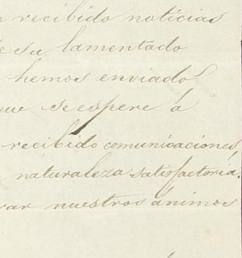 recibido noticias
su lamentado
hemos enviado
que se espere á
recibido comunicaciones,
naturaleza satisfactoria.
rar nuestros ánimos